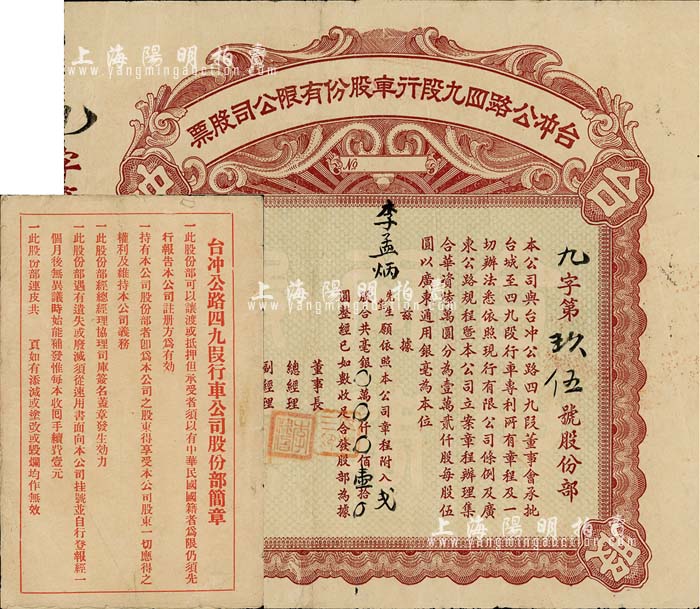 上海陽明拍賣
www.yangmingauction.com
台冲公路四九段行車股份有限公司股票
No
台
股
九字第玖伍號股份部
本公司與台冲公路四九段董事會承批
台城至四九段行車專利所有章程及一
切辦法悉依照現行有限公司條例及廣
東公路規程暨本公司立案章程辦理集
合華資陸萬圓分為壹萬貳仟股每股伍
圓以廣東通用銀毫為本位
茲據
李孟炳
先生願依照本公司章程附入弍
圓整經已如數收足合發股部為據
董事長
總經理
副經理
台冲公路四九段行車公司股份部簡章
一此股份部可以讓渡或抵押但承受者須以有中華民國國籍者為限仍須先
行報告本公司註册方為有効
一持有本公司股份部者卽為本公司之股東得享受本公司股東一切應得之
權利及維持本公司義務
一此股份部經總經理協理司庫簽名蓋章發生効力
一此股份部遇有遺失或廢滅須從速用書面向本公司挂號並自行登報經一
個月後無異議時始能補發惟每本收囘手續費壹元
一此股份部連皮共　頁如有添減或塗改或毀爛均作無效